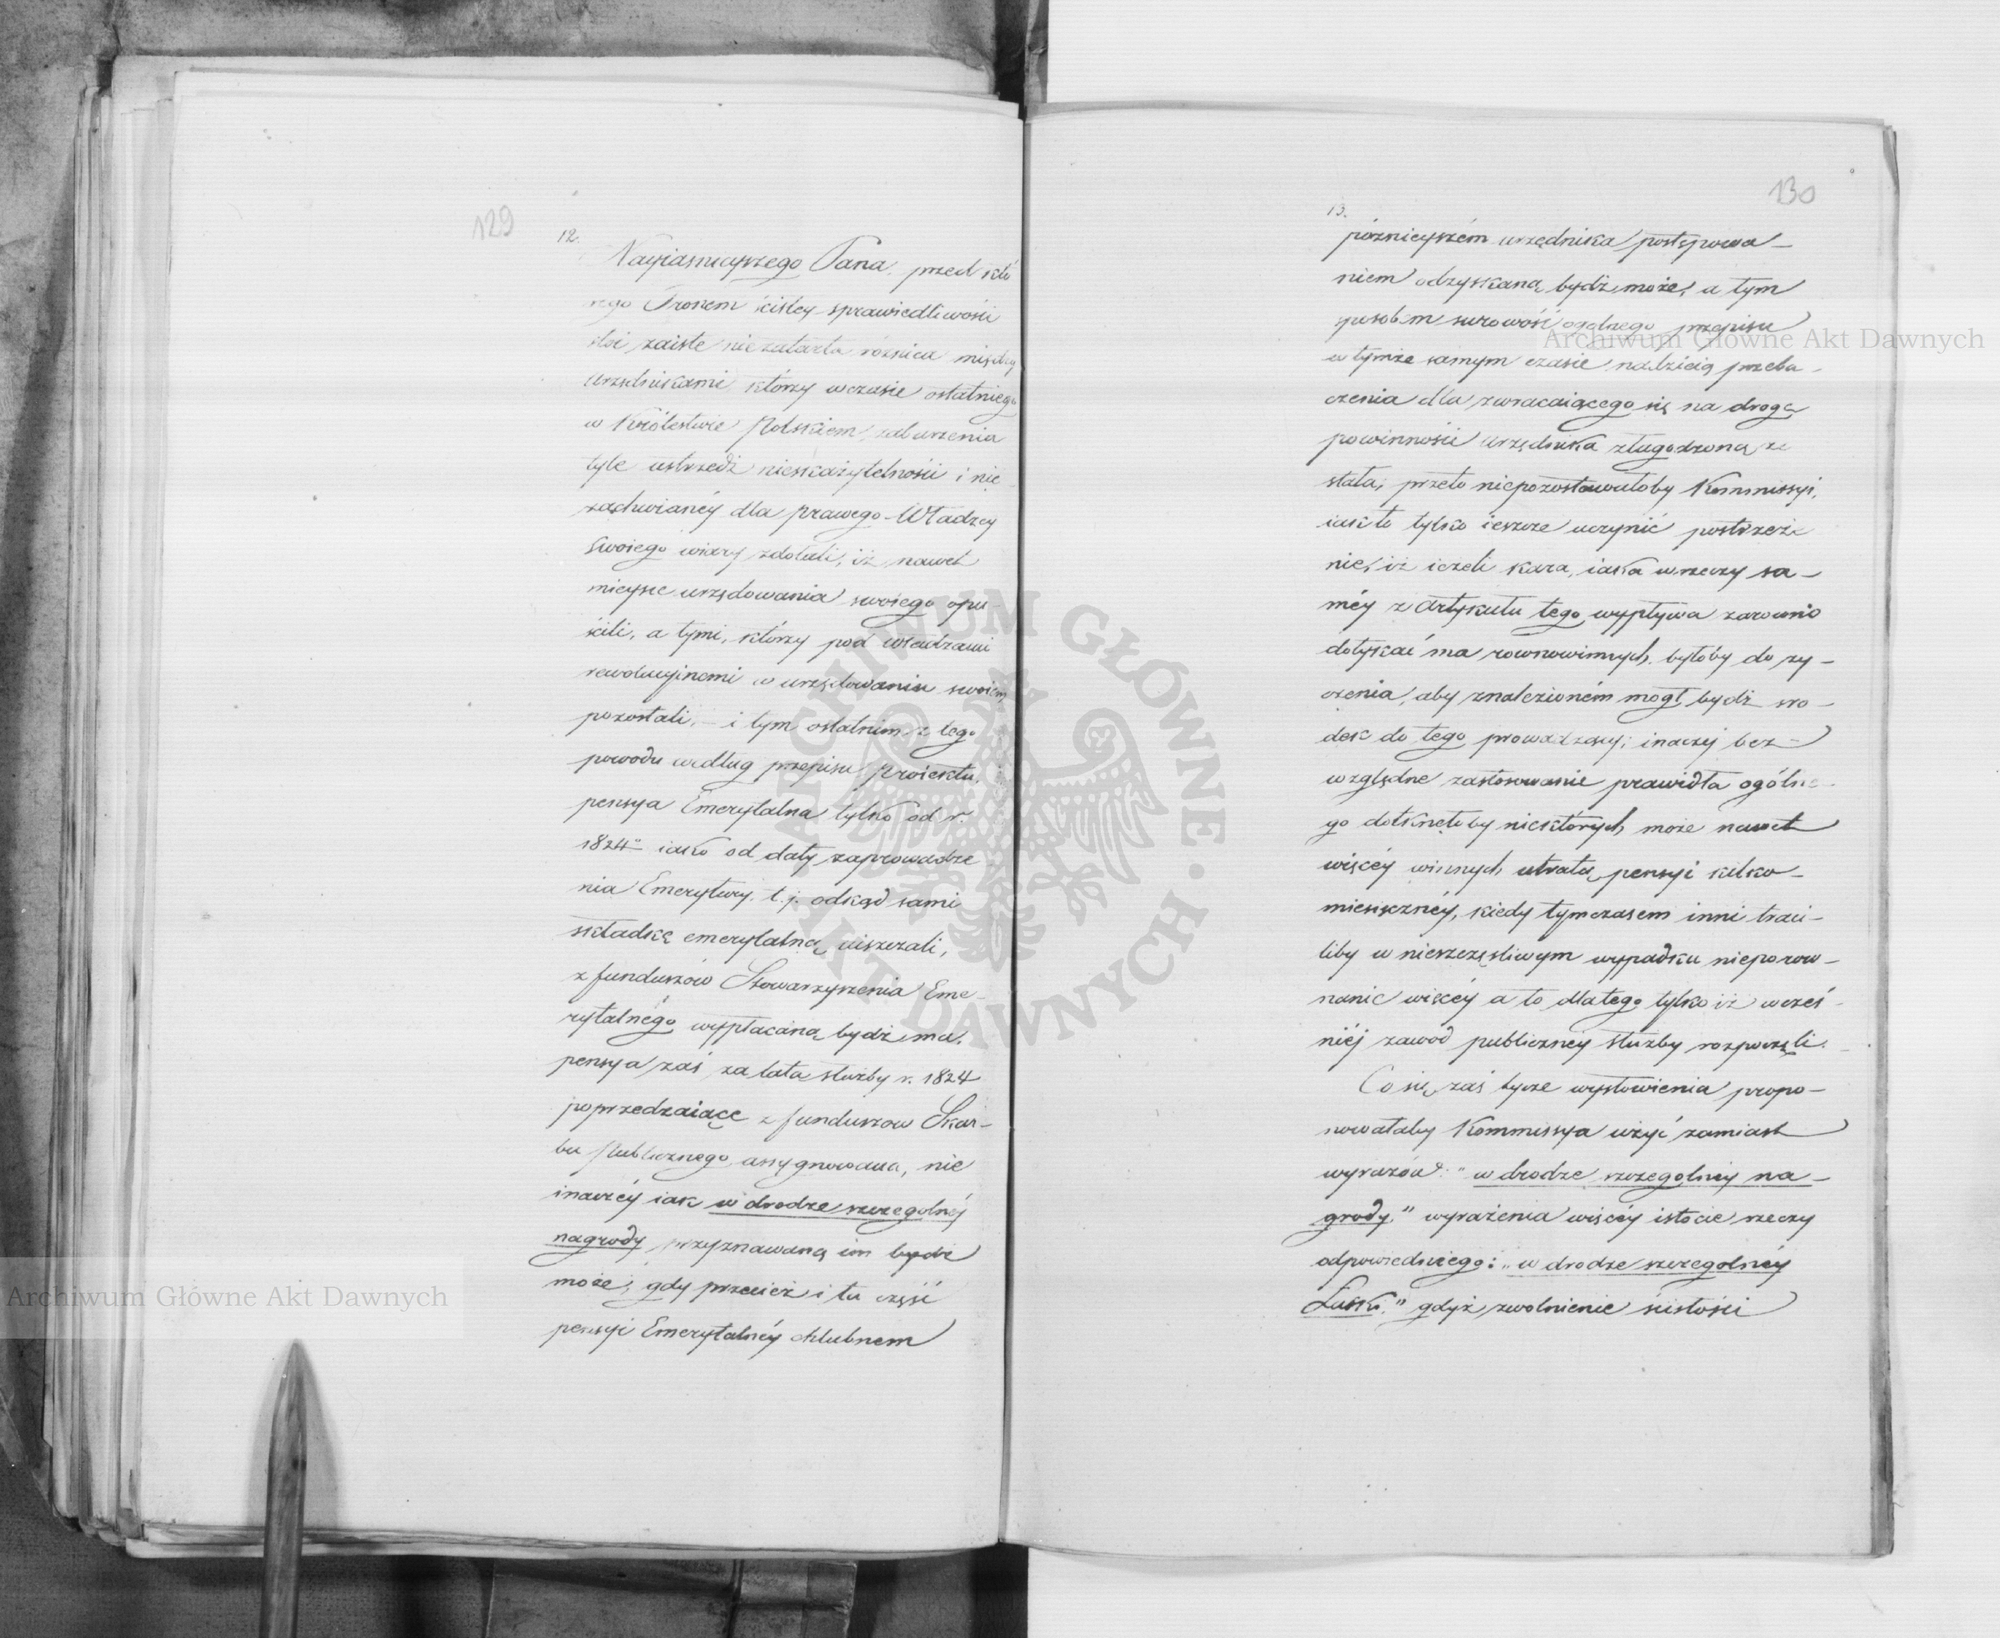 129
12.
Nayiasnieyszego Pana, przed któ
rego Tronem ścisley sprawiedliwości
stoi zaiste niezatarta róznica między
urzędnikami którzy w czasie ostatniego
w Królestwie Polskiem zaburzenia
tyle ustrzedz nieskazytelności i nie
zachwianéy dla prawego Władzcy
swoiego wiary zdołali, iż nawet
mieysce urzędowania swoiego opu-
ścili, a tymi, którzy pod władzami
rewolucyinemi w urzędowaniu swoiem
pozostali, – i tym ostatnim z tego
powodu według przepisu proiektu,
pensya Emerytalna tylko od r.
1824 iako od daty zaprowadze
nia Emerytury t. j. odkąd sami
składkę emerytalną uiszczali,
z funduszów Stowarzyszenia Eme-
rytalnégo wypłacaną bydz ma,
pensya zaś za lata służby r. 1824
poprzedzaiące z funduszow Skar-
bu Publicznego assygnowana, nie
inaczéy iak w drodze szczegolnéy
nagrody przyznawaną im bydz
może; gdy przecież i ta część
pensyi Emerytalnéy chlubnem
130
13.
póznieyszém urzędnika postępowa-
niem odzyskaną bydz może, a tym
sposobem surowość ogolnego przepisu
w tymże samym czasie nadzieią przeba-
czenia dla zwracaiącego się na drogę
powinności urzędnika złagodzoną zo
stała; przeto niepozostawałoby Kommissyi,
iak to tylko ieszcze uczynić postrzeże
nie, iż ieżeli kara, iaka w rzeczy sa-
méy z Artykułu tego wypływa zarowno
dotykać ma rownowinnych, byłoby do ży-
czenia, aby znalezioném mogł bydź sro-
dek do tego prowadzący; inaczéy bez-
względne zastosowanie prawidła ogólne-
go dotknęłoby niektórych może nawet
więcéy winnych utratą pensyi kilko-
miesięcznéy, kiedy tymczasem inni traci-
liby w nieszczęśliwym wypadku nieporow-
nanie więcéy a to dlatego tylko iż wcześ-
niéj zawód publiczney służby rozpoczęli.
Co się zaś tycze wysłowienia propo-
nowałaby Kommissya użyć zamiast
wyrazów: "w drodze szczegolnéy na-
grody," wyrażenia więcéy istocie rzeczy
odpowiedniego: „w drodze szczegolnéy
Łaski," gdyż zwolnienie ścisłości
Archiwum Główne Akt Dawnych
Archiwum Główne Akt Dawnych
ARCHIWUM GŁÓWNE AKT DAWNYCH